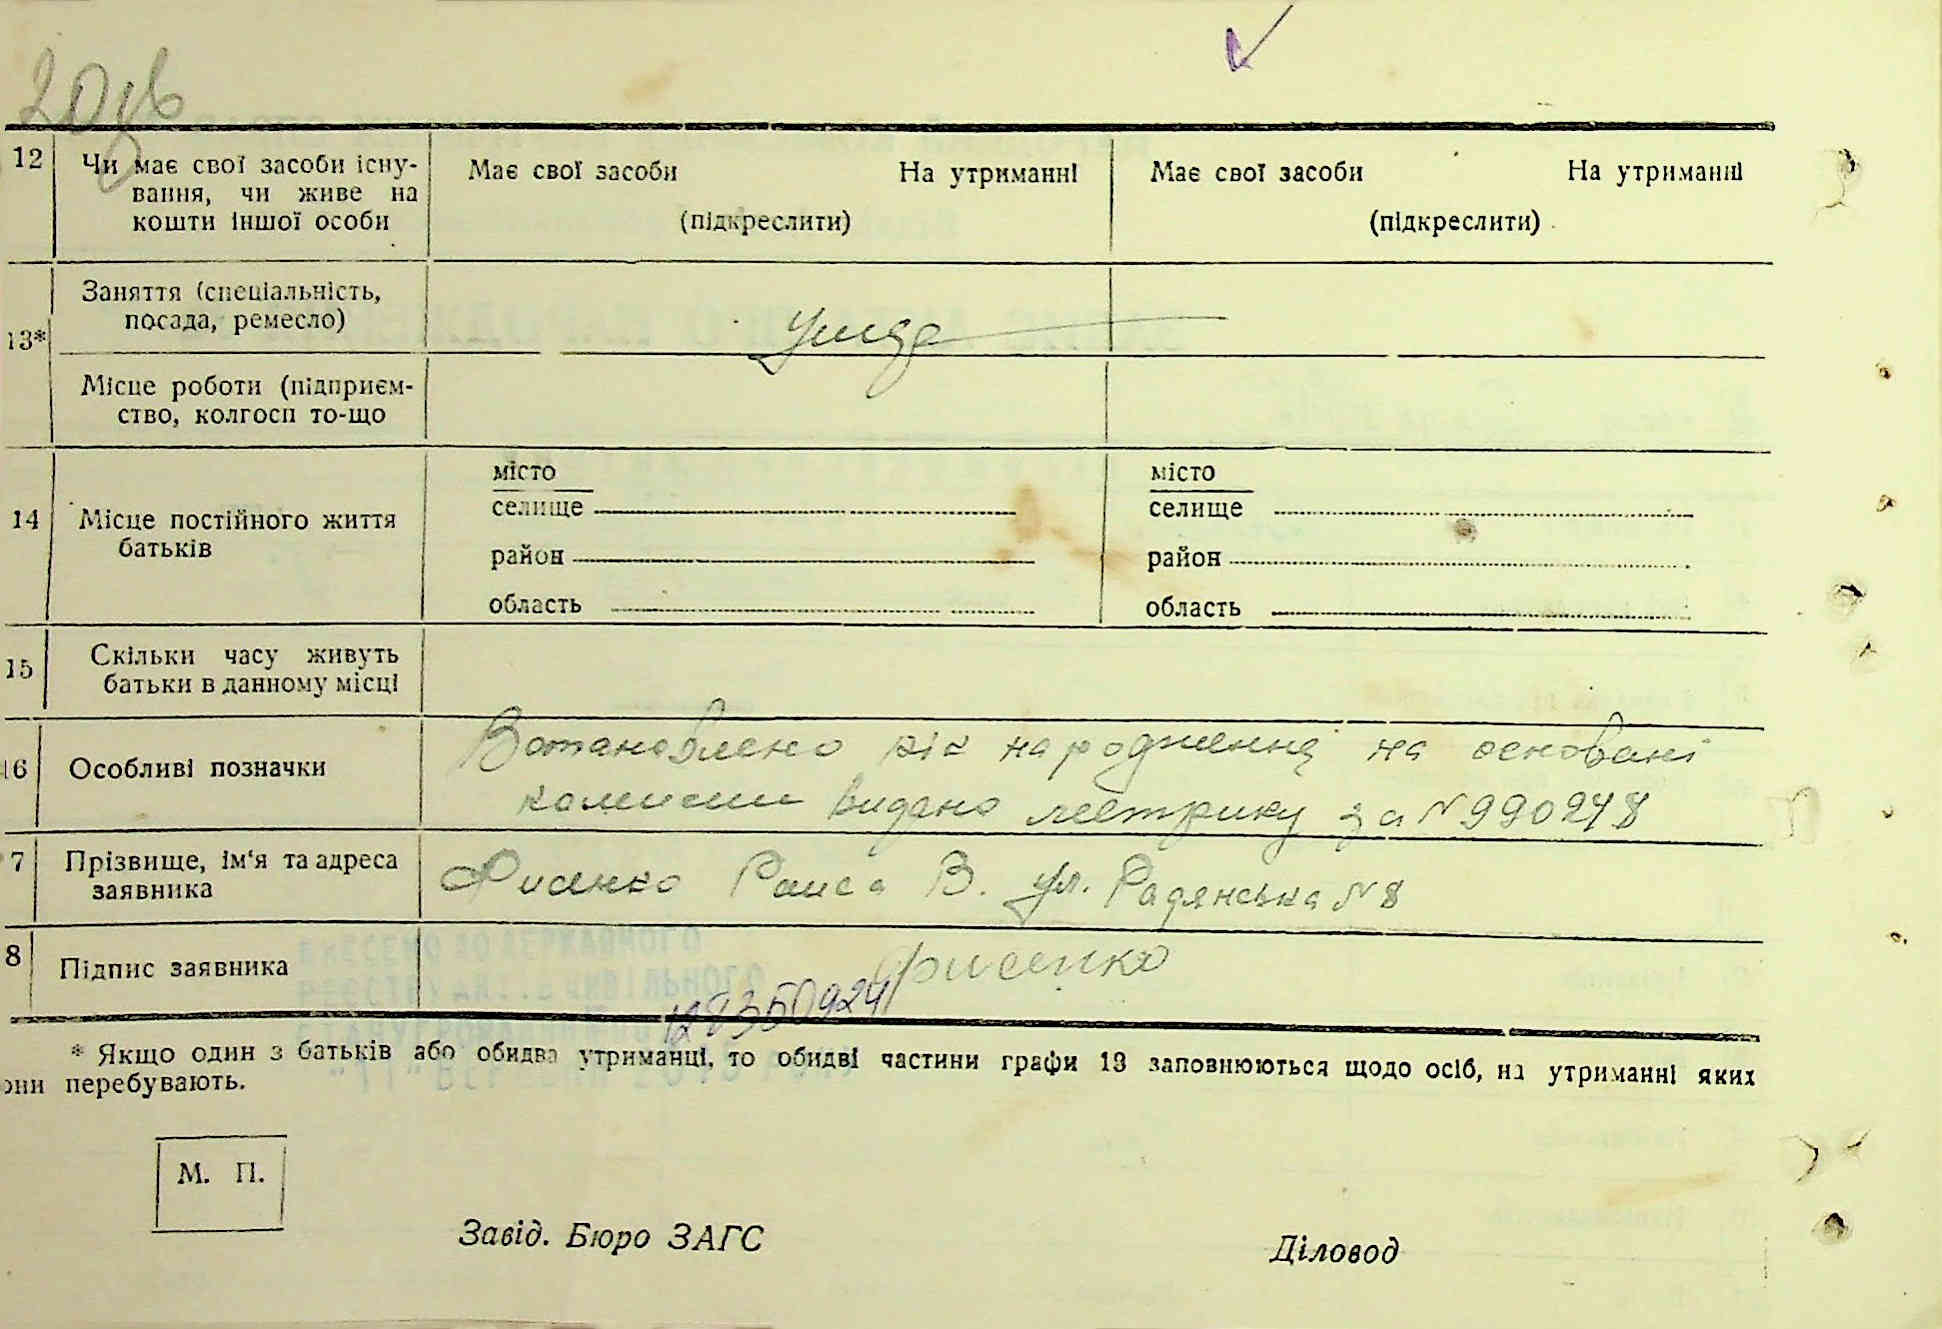 12 Чи має свої засоби існу-
вання, чи живе на
кошти іншої особи
Має свої засоби На утриманні
(підкреслити)
Має свої засоби На утриманні
(підкреслити)
13* Заняття (спеціальність,
посада, ремесло)
Місце роботи (підприєм-
ство, колгосп то-що
14 Місце постійного життя
батьків
місто
селище
район
область
місто
селище
район
область
15 Скільки часу живуть
батьки в данному місці
16 Особливі позначки
Встановлено рік народження на основані
комисии видано метрику за №990248
7 Прізвище, ім'я та адреса
заявника
Фисенко Раиса В. ул. Радянська №8
8 Підпис заявника
Фисенко
ВНЕСЕНО ДО ДЕРЖАВНОГО
РЕЄСТРУ АКТІВ ЦИВІЛЬНОГО
СТАНУ ГРОМАДЯН
* Якщо один з батьків або обидва утриманці, то обидві частини графи 13 заповнюються щодо осіб, на утриманні яких
они перебувають.
М. П.
Завід. Бюро ЗАГС
Діловод